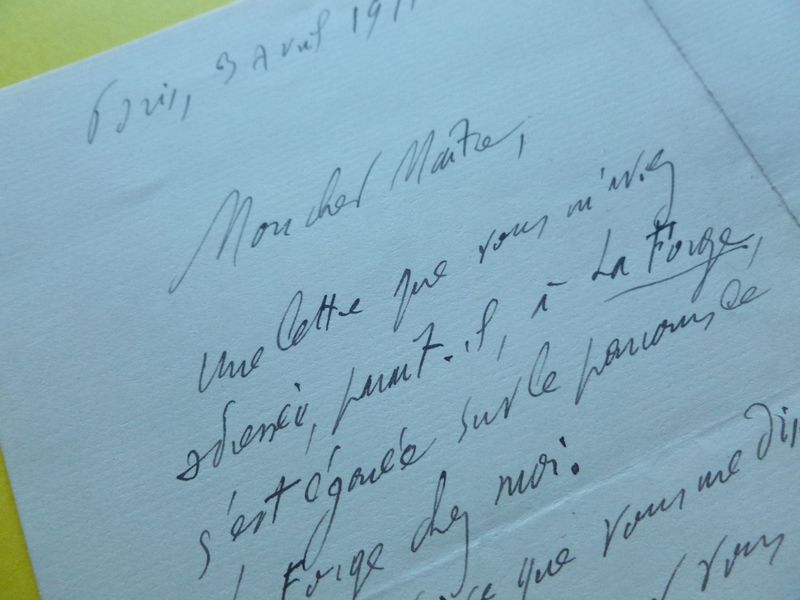 Paris, 3 Avril 191
Mon cher Maître,
Une lettre que vous m'aviez
adressée, paraît-il, à La Forge,
s'est égarée sur le parcours de
Forge chez moi.
ce que vous me dis
vous